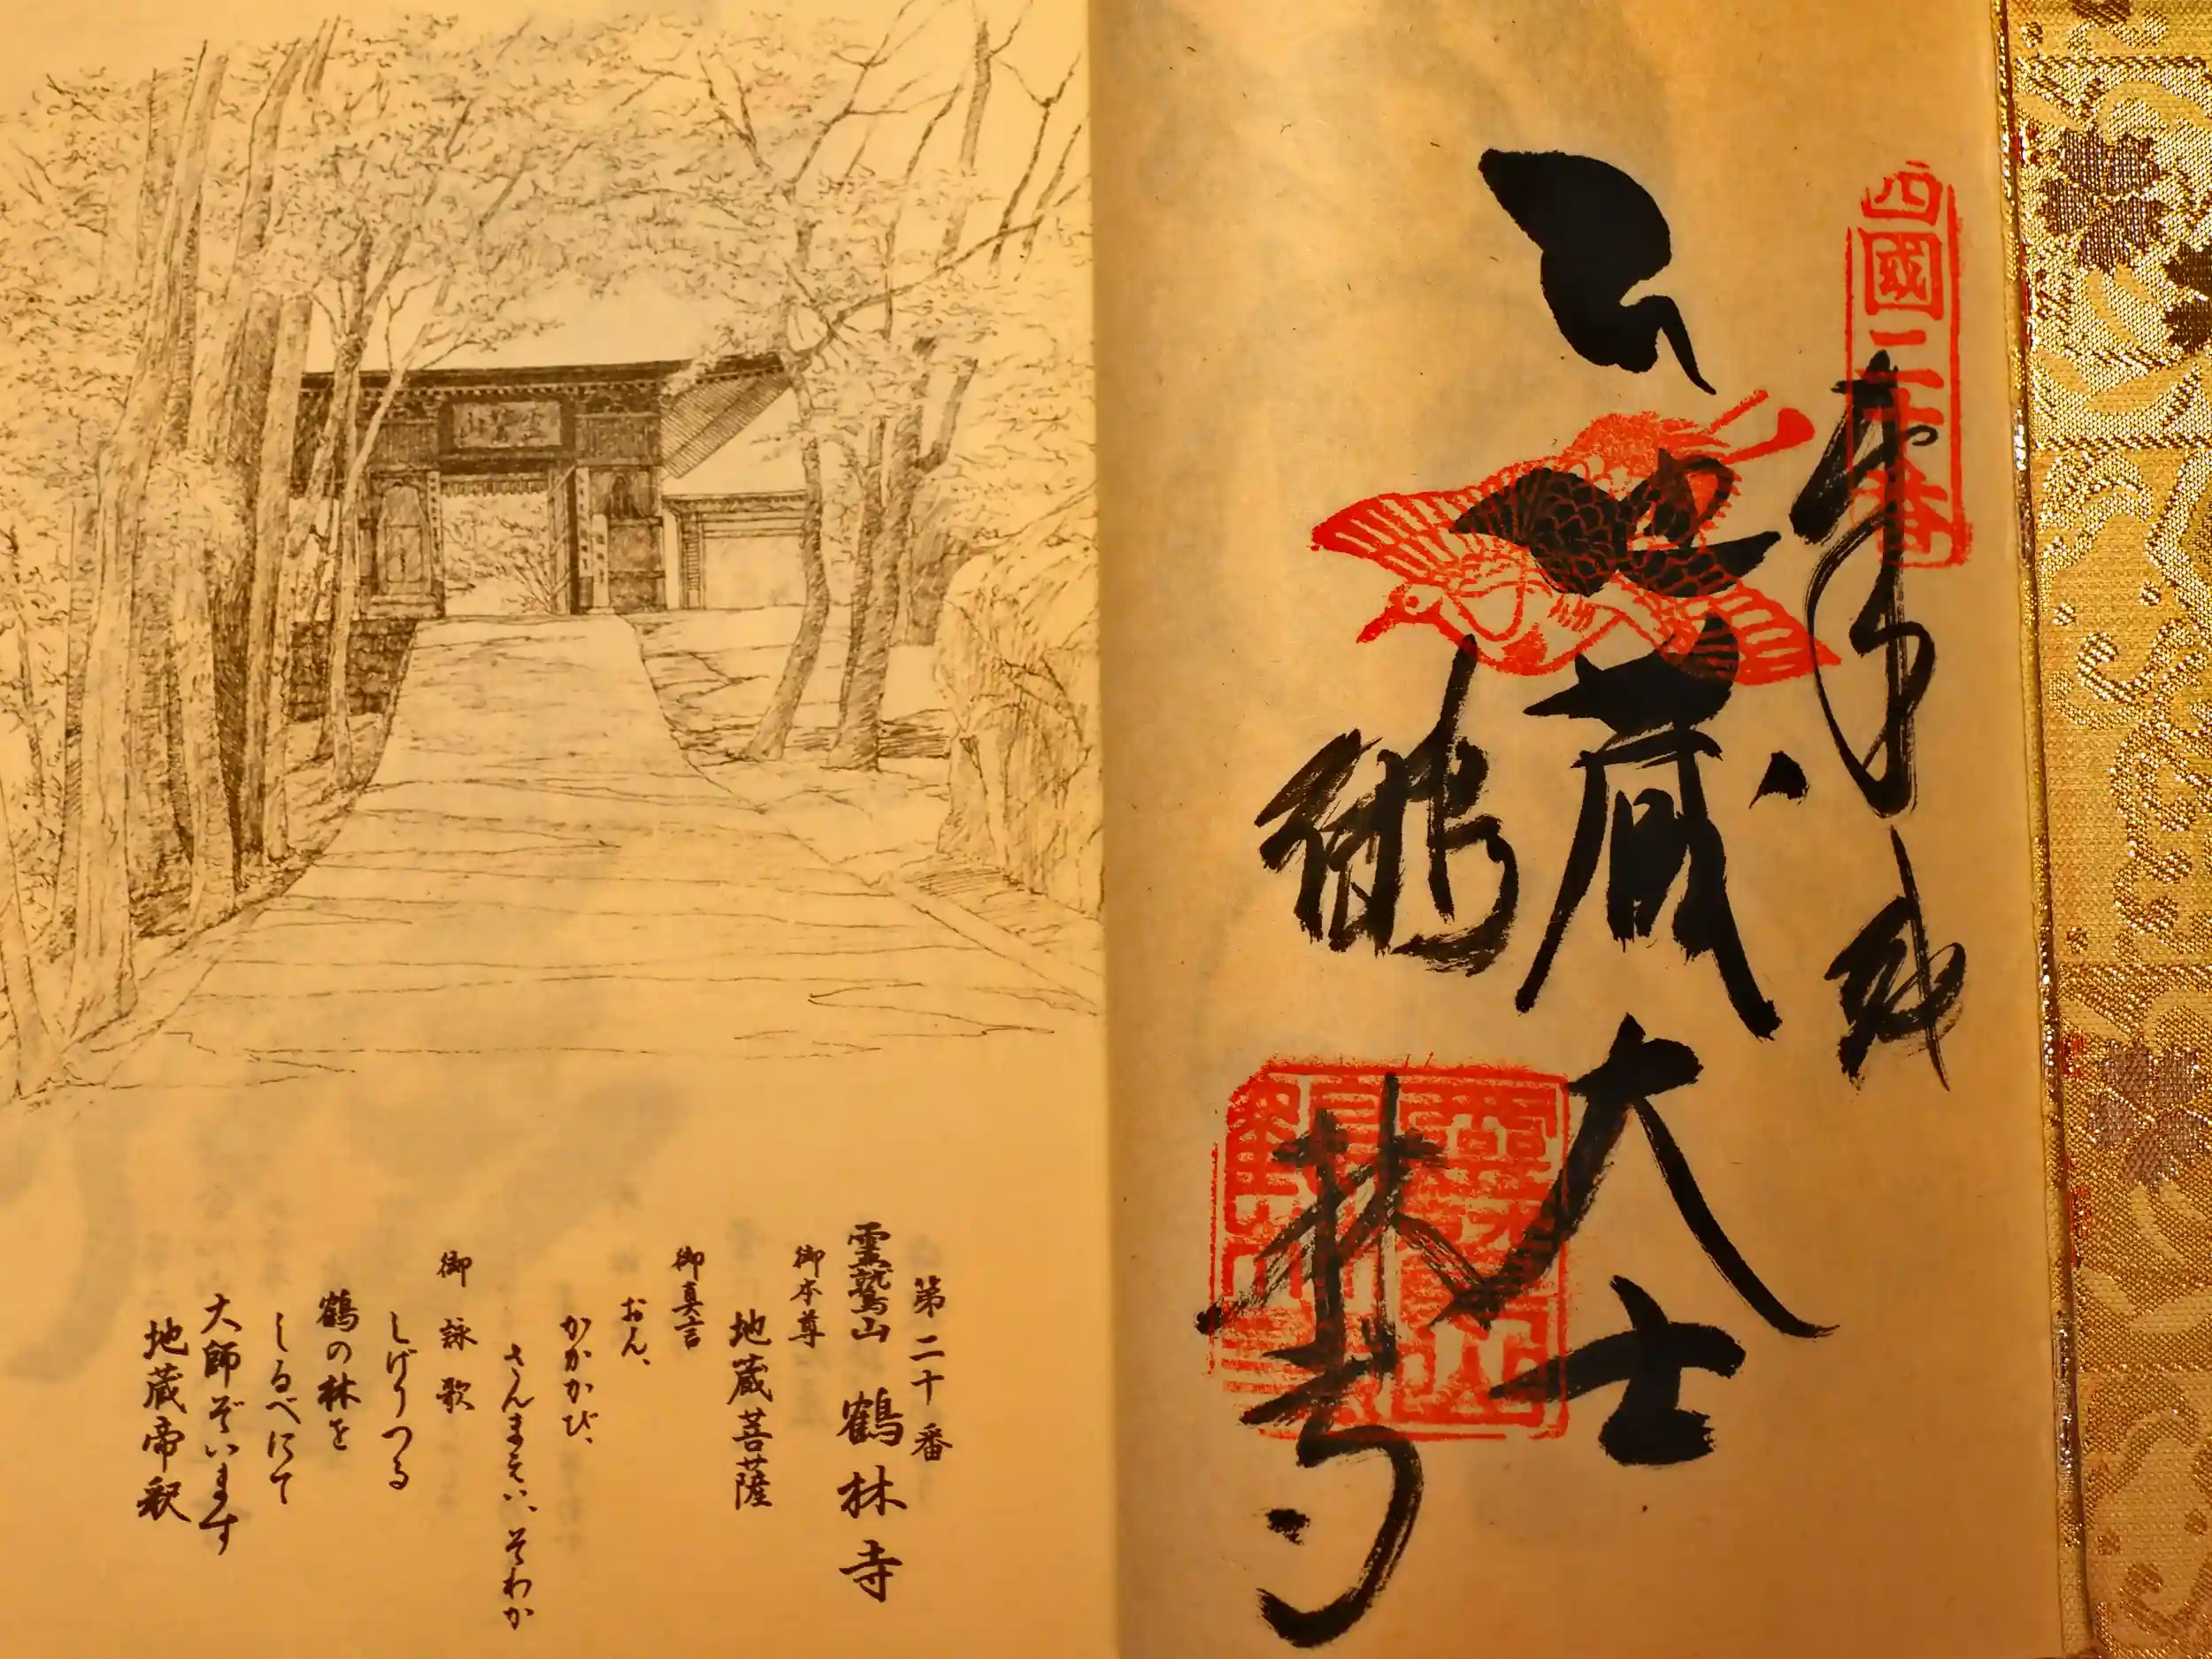 四國二十番
奉納
地蔵大士
鶴林寺
第二十番
霊鷲山 鶴林寺
御本尊
地蔵菩薩
御真言
おん、
かかかび、
さんまえい、そわか
御詠歌
しげりつる
鶴の林を
しるべにて
大師ぞいます
地蔵帝釈